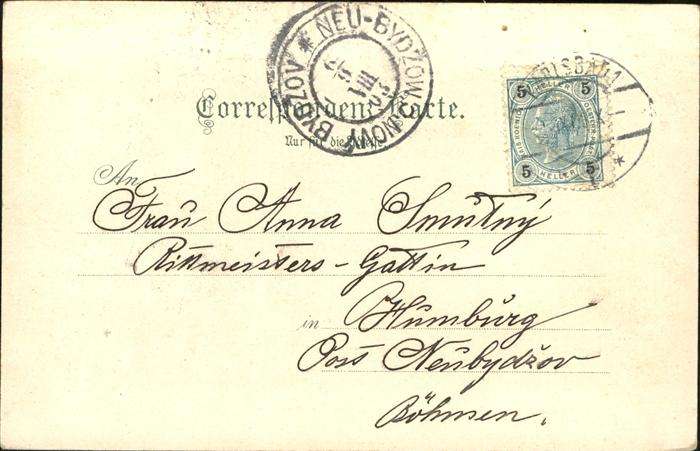 * NEU-BYDŽOW * NOVÝ BYDŽOV
Correspondenz-Karte.
5 HELLER 5
5 HELLER 5
Nur für die Adresse
An
Frau Anna Smutný
Rittmeisters-Gattin
in Humburg
Post Neubydžov
Böhmen.